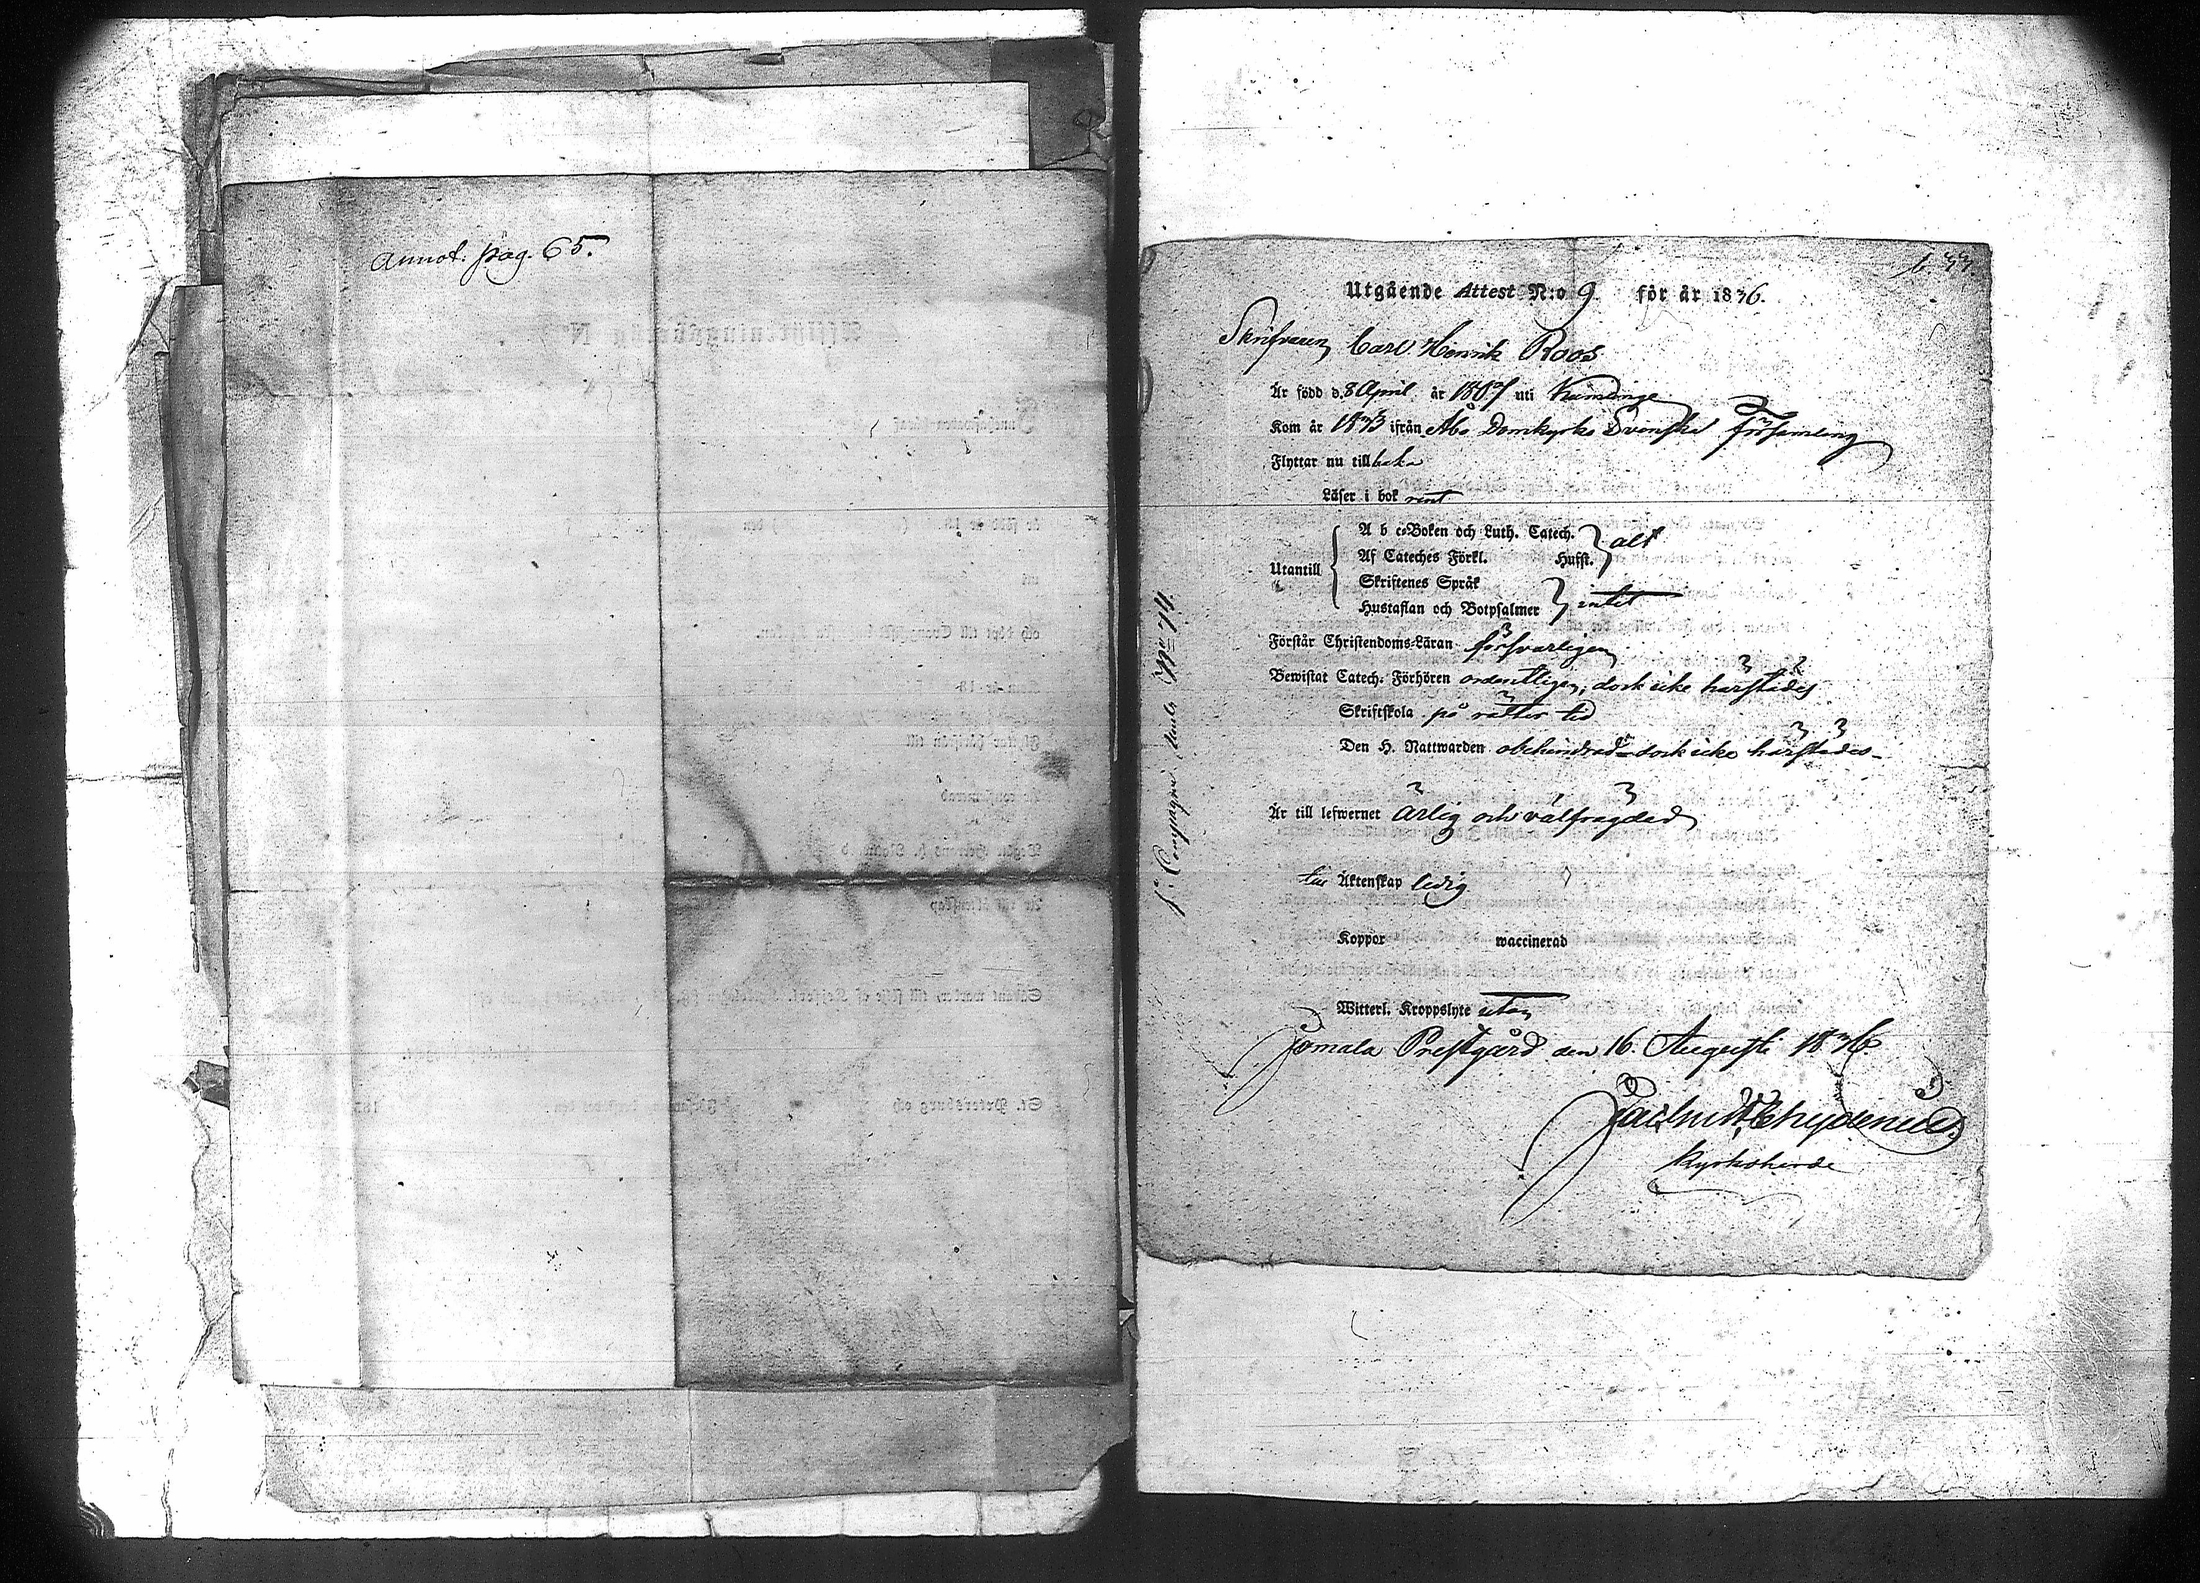 Annot. pag. 65.
b. 33.
Utgående Attest N:o 9 för år 1836.
Skrifvaren Carl Henrik Roos
Är född d. 8 April år 1807 uti Kumlinge
Kom år 1833 ifrån Åbo Domkyrko Svenska Församling
Flyttar nu tillbaka
Läser i bok rent
A b c-Boken och Luth. Catech.
Af Cateches Förkl. Husst. } alt
Utantill
Skriftenes Språk
Hustaflan och Botpsalmer } intet
Förstår Christendoms-Läran försvarligen
Bewistat Catech. Förhören ordentligen, dock icke härstädes
Skriftskola på rätter tid
Den H. Nattwarden obehindrad dock icke härstädes
Är till lefwernet ärlig och välfrägdad
till Äktenskap ledig
Koppor waccinerad
Witterl. Kroppslyte utan
Jomala Prestgård den 16. Augusti 1836.
Chydenius
Kyrkoherde